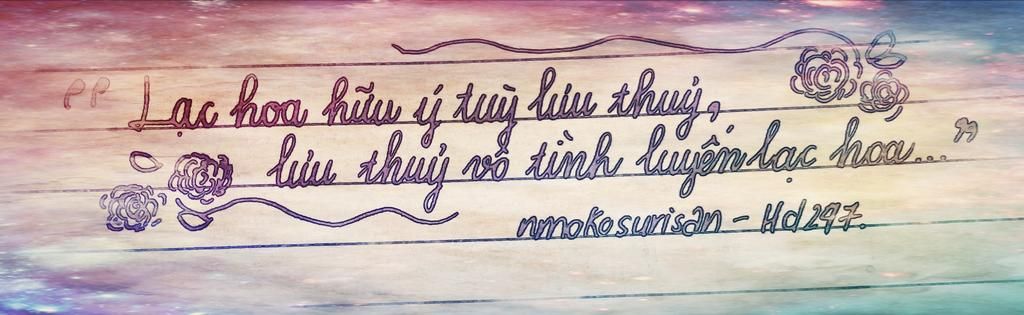 "Lạc hoa hữu ý tuỳ lưu thuỷ,
lưu thuỷ vô tình luyến lạc hoa..."
nmokosurisan - Hd247.